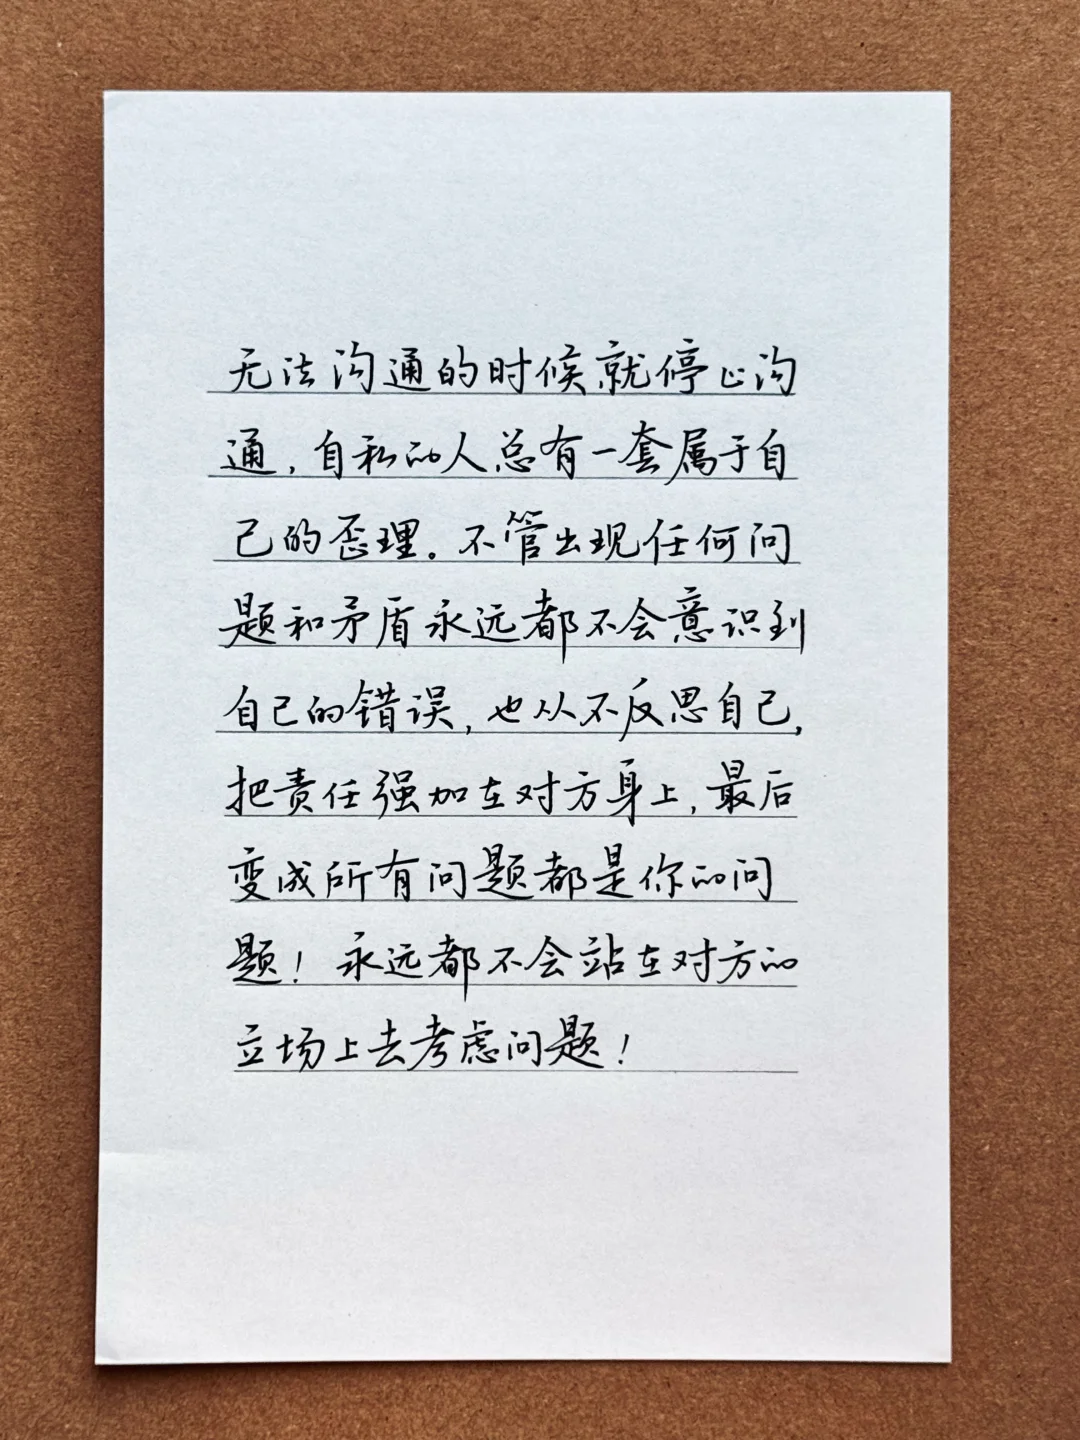 无法沟通的时候就停止沟
通,自私的人总有一套属于自
己的歪理。不管出现任何问
题和矛盾永远都不会意识到
自己的错误,也从不反思自己,
把责任强加在对方身上,最后
变成所有问题都是你的问
题!永远都不会站在对方的
立场上去考虑问题!